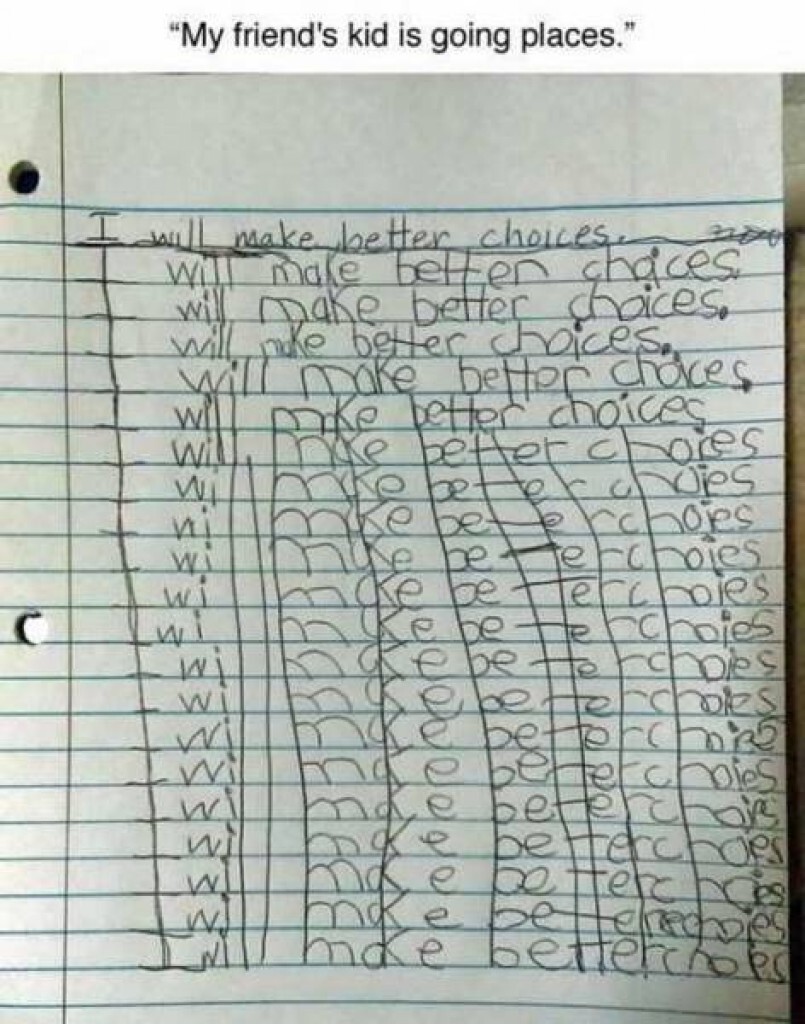 “My friend's kid is going places.”
I will make better choices.
I will make better choices.
I will make better choices.
I will make better choices.
I will make better choices.
I will make better choices
I will make better choies
I will make better choies
I will make better choies
I will make better choies
I will make better choies
I will make better choies
I will make better choies
I will make better choies
I will make better choies
I will make better choies
I will make better chois
I will make better choes
I will make better choies
I will make better choies
I will make better choes